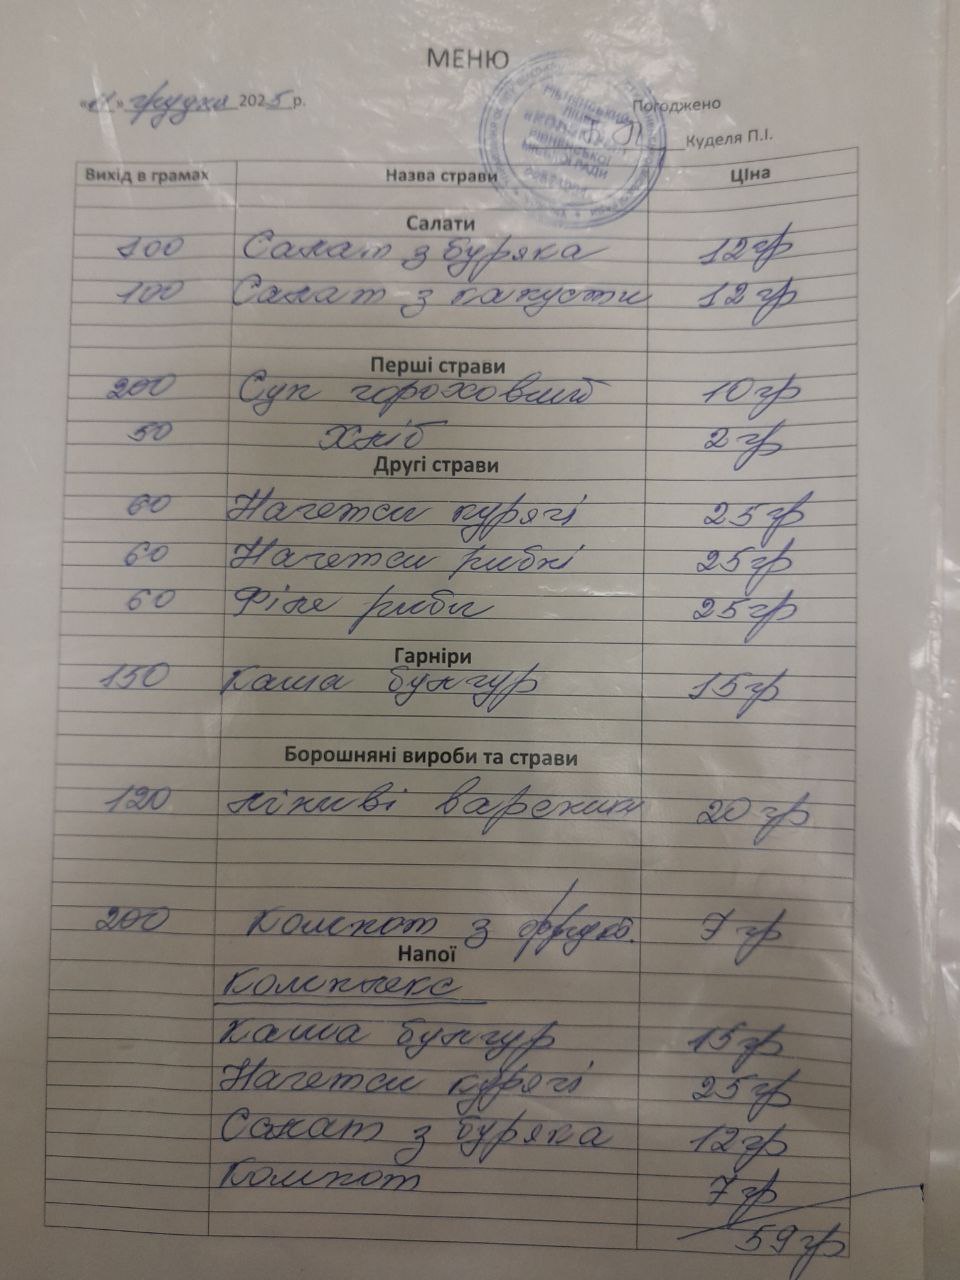 МЕНЮ
« » грудня 2025 р.
Погоджено
Куделя П.І.
РІВНЕНСЬКИЙ
ЛІЦЕЙ
РІВНЕНСЬКОЇ
МІСЬКОЇ РАДИ
Вихід в грамах Назва страви Ціна
Салати
100 Салат з буряка 12 гр
100 Салат з капусти 12 гр
Перші страви
200 Суп гороховий 10 гр
50 Хліб 2 гр
Другі страви
60 Нагетси курячі 25 гр
60 Нагетси рибні 25 гр
60 Філе риби 25 гр
Гарніри
150 Каша булгур 15 гр
Борошняні вироби та страви
120 Ліниві вареники 20 гр
200 Компот з фрукт. 7 гр
Напої
Комплекс
Каша булгур 15 гр
Нагетси курячі 25 гр
Салат з буряка 12 гр
Компот 7 гр
59 гр